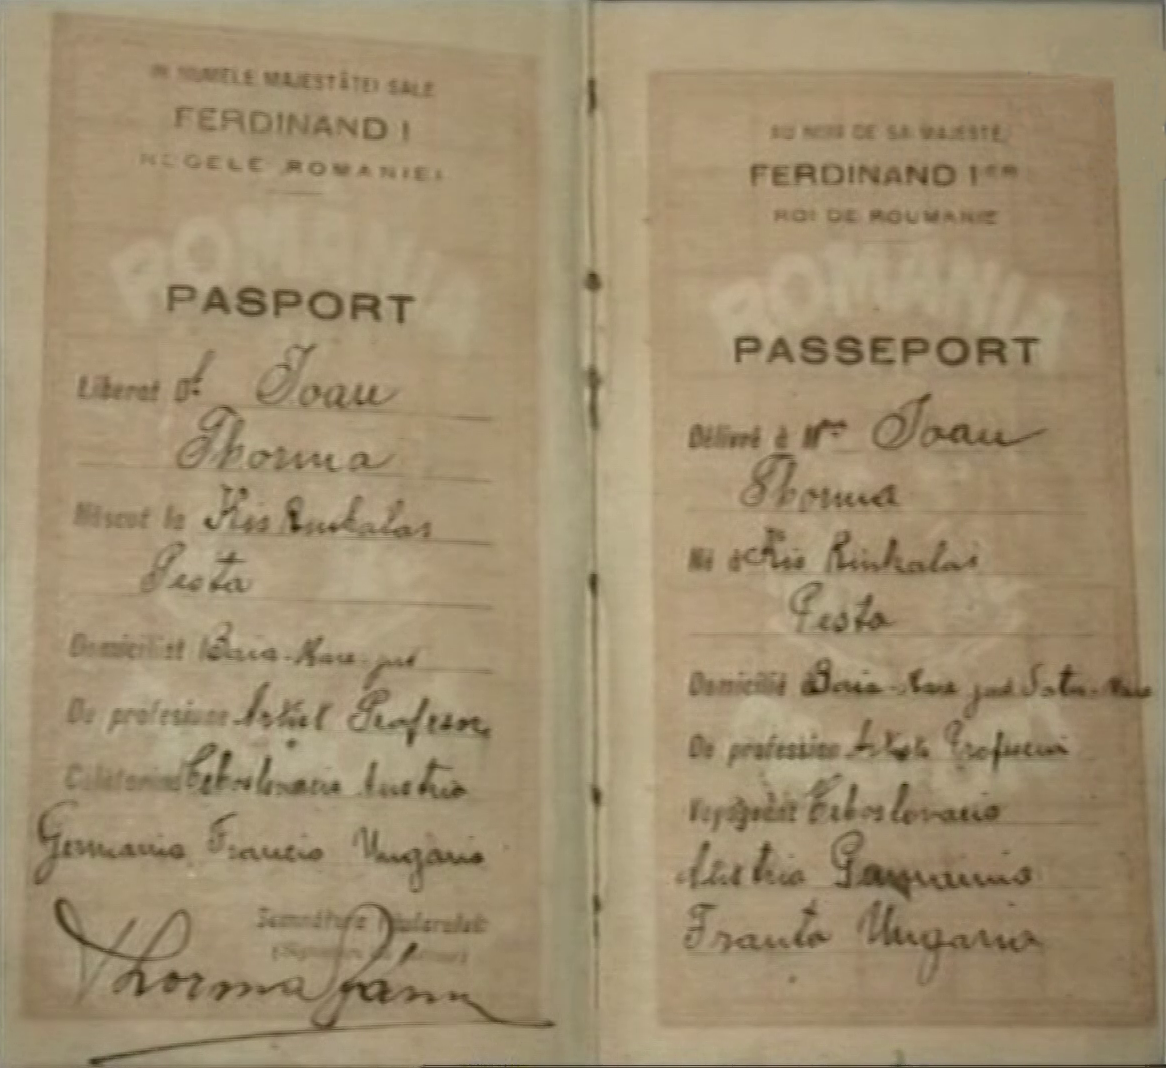 IN NUMELE MAJESTĂTEI SALE
FERDINAND I
REGELE ROMANIEI
ROMÂNIA
PASPORT
Liberat Dl Ioan
Thorma
Născut la Kis Kunhalas
Pesta
Domiciliat Baia-Mare jud
De profesiune Artist Profesor
Călătorind Cehoslovacia Austria
Germania Francia Ungaria
Semnătura Titularului
Thorma János
AU NOM DE SA MAJESTÉ
FERDINAND Ier
ROI DE ROUMANIE
ROMÂNIA
PASSEPORT
Délivré à Mr Ioan
Thorma
Né à Kis Kinhalas
Pesta
Domicilié Baia-Mare jud Satu-Mare
De profession Artiste
Voyageant Cehoslovacia
Austria Germania
Franta Ungaria